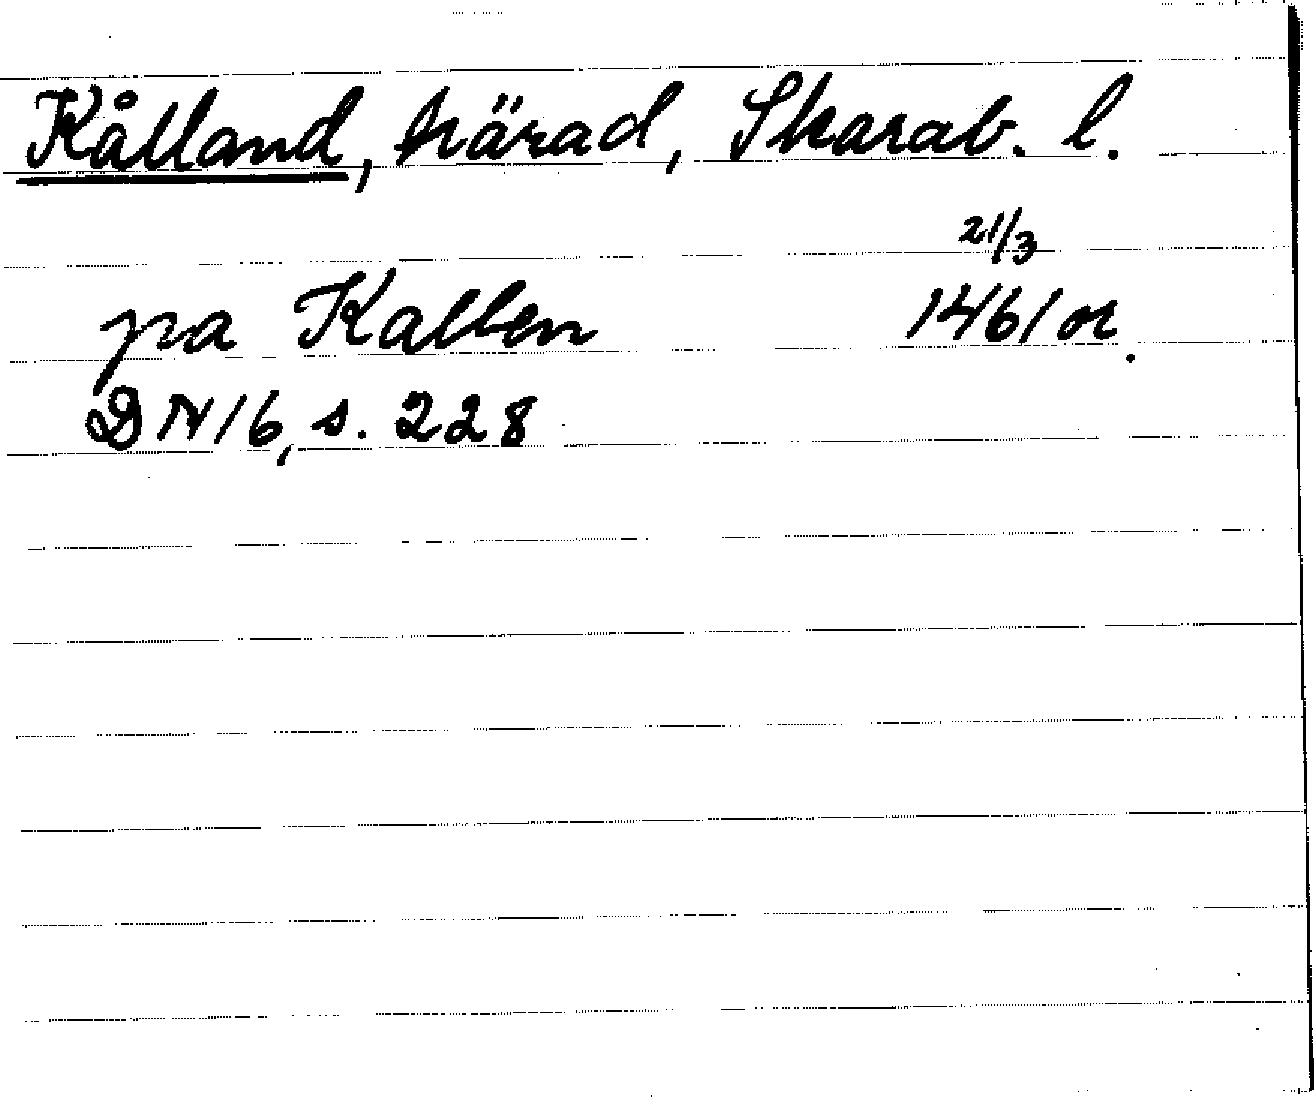 Kålland, härad, Skarab. l.
21/3
pa Kallen 1461 or.
DN 16, s. 228